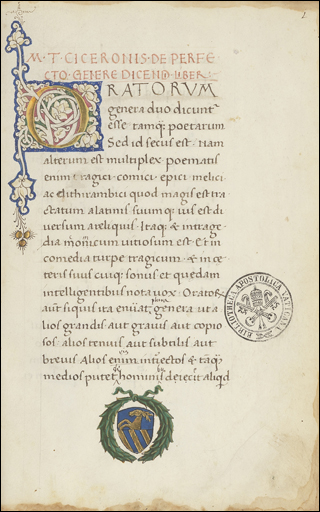 2
M. T. CICERONIS. DE PERFE
CTO. GENERE DICENDI LIBER
ORATORVM
genera duo dicunt̃
esse tamq̃ poetarum
Sed id secus est. Nam
alterum est multiplex poematis
enim tragici comici epici melici
ac dithirambici quod magis est tra
ctatum a latinis suum q; uis est di
uersum a reliquis. Itaq; & in trage
dia comicum uitiosum est. Et in
comedia turpe tragicum. & in ce
teris suus cuiq; sonus et quedam
intelligentibus nota uox. Oratorũ
aut̃ siquis ita enũat plura genera ut a
lios grandis aut grauis aut copio
sos. alios tenuis aut subtilis aut
breuis Alios enim interiectos & tãq̃
medios putet homĩbus deiecit aliqd
BIBLIOTHECA APOSTOLICA VATICANA